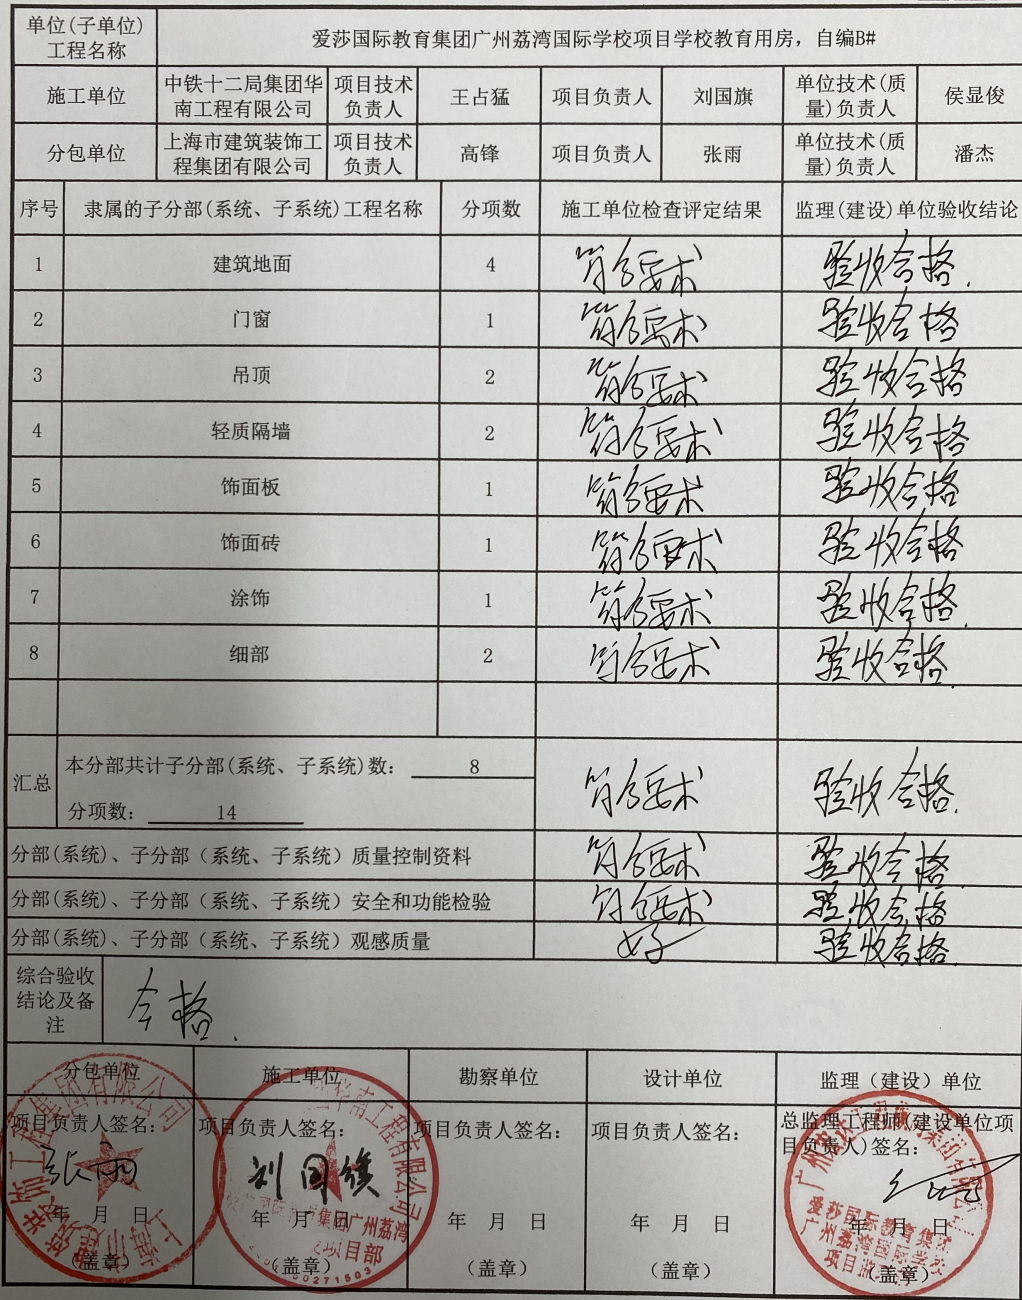 单位(子单位)
工程名称
爱莎国际教育集团广州荔湾国际学校项目学校教育用房，自编B#
施工单位
中铁十二局集团华
南工程有限公司
项目技术
负责人
王占猛
项目负责人
刘国旗
单位技术(质
量)负责人
侯显俊
分包单位
上海市建筑装饰工
程集团有限公司
项目技术
负责人
高锋
项目负责人
张雨
单位技术(质
量)负责人
潘杰
序号 隶属的子分部(系统、子系统)工程名称 分项数 施工单位检查评定结果 监理(建设)单位验收结论
1 建筑地面 4 符合要求 验收合格.
2 门窗 1 符合要求 验收合格
3 吊顶 2 符合要求 验收合格
4 轻质隔墙 2 符合要求 验收合格
5 饰面板 1 符合要求 验收合格
6 饰面砖 1 符合要求 验收合格
7 涂饰 1 符合要求 验收合格.
8 细部 2 符合要求 验收合格.
汇总
本分部共计子分部(系统、子系统)数： 8
分项数： 14
符合要求 验收合格.
分部(系统)、子分部（系统、子系统）质量控制资料 符合要求 验收合格.
分部(系统)、子分部（系统、子系统）安全和功能检验 符合要求 验收合格
分部(系统)、子分部（系统、子系统）观感质量 好 验收合格.
综合验收
结论及备
注
合格.
分包单位 施工单位 勘察单位 设计单位 监理（建设）单位
项目负责人签名：
张雨
年 月 日
(盖章)
项目负责人签名：
刘国旗
年 月 日
(盖章)
项目负责人签名：
年 月 日
(盖章)
项目负责人签名：
年 月 日
(盖章)
总监理工程师(建设单位项
目负责人)签名：
年 月 日
(盖章)
集团有限公司
华南工程有限公司
国际教育集团广州荔湾
项目部
爱莎国际教育集团
广州荔湾国际学校